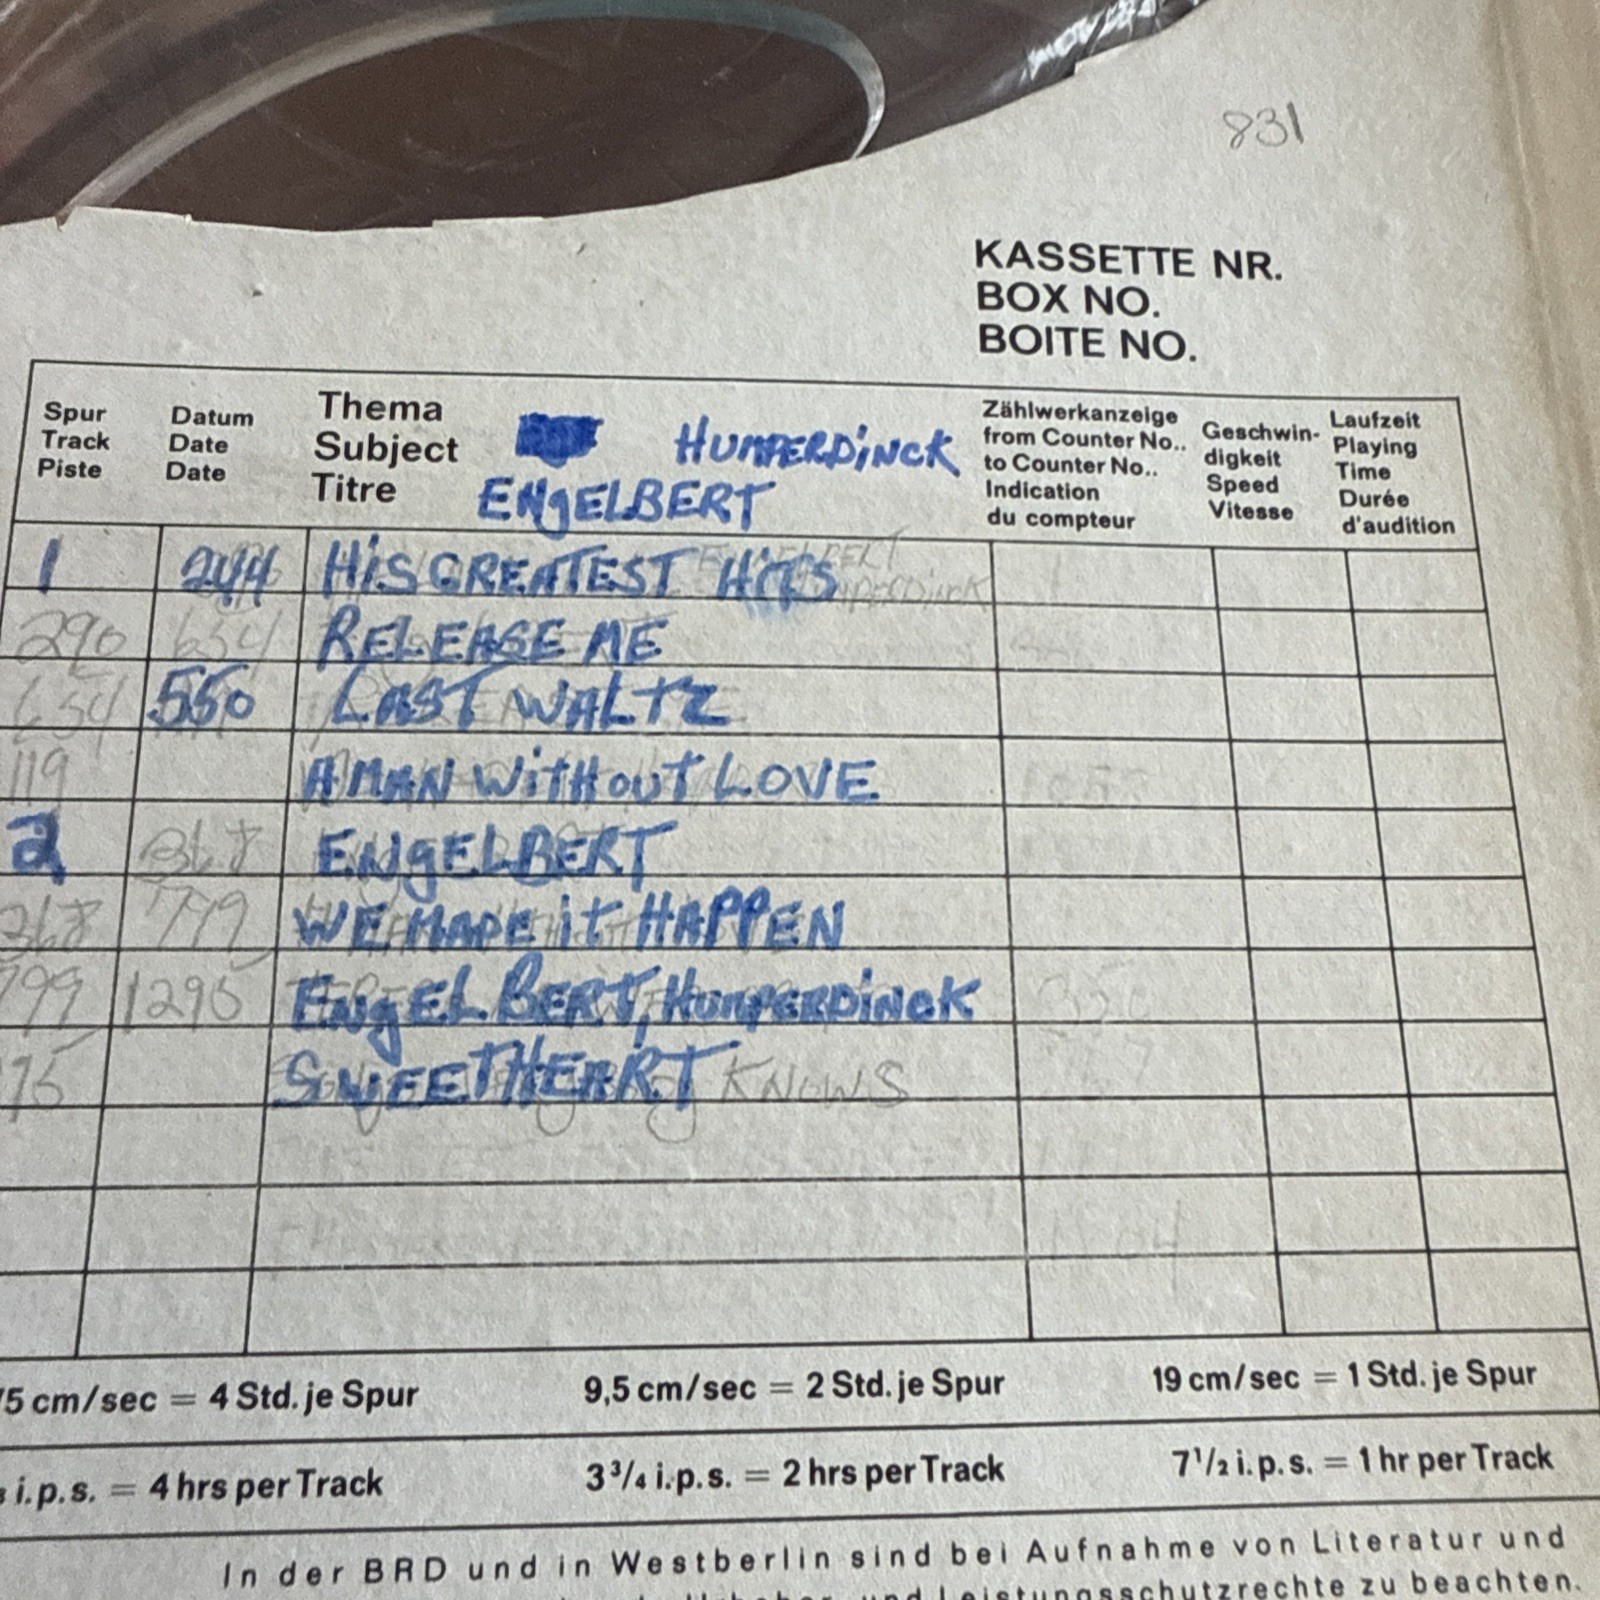 831
KASSETTE NR.
BOX NO.
BOITE NO.
Spur
Track
Piste
Datum
Date
Date
Thema
Subject
Titre
HUMPERDiNCK
ENgELBERT
Zählwerkanzeige
from Counter No..
to Counter No..
Indication
du compteur
Geschwin-
digkeit
Speed
Vitesse
Laufzeit
Playing
Time
Durée
d'audition
1 244 HiS GREATEST HiTS
290 654 RELEASE ME
654 550 LAST WALTZ
119 A MAN WiTHOUT LOVE
2 367 ENgELBERT
367 779 WE MADE iT HAPPEN
799 1295 ENgELBERT, HUMPERDiNCK
SWEETHEART KNOWS
5 cm/sec = 4 Std. je Spur 9,5 cm/sec = 2 Std. je Spur 19 cm/sec = 1 Std. je Spur
i.p.s. = 4 hrs per Track 3 3/4 i.p.s. = 2 hrs per Track 7 1/2 i.p.s. = 1 hr per Track
In der BRD und in Westberlin sind bei Aufnahme von Literatur und
und Leistungsschutzrechte zu beachten.